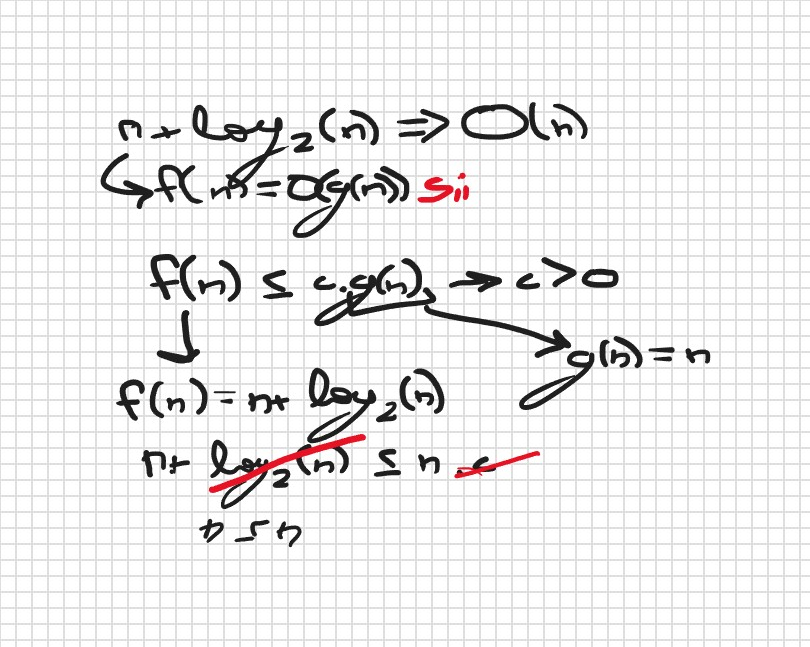 n + log₂(n) ⇒ O(n)
↳ f(n) = O(g(n)) sii
f(n) ≤ c.g(n) → c > 0
g(n) = n
f(n) = n + log₂(n)
n + log₂(n) ≤ n . c
n ≤ n